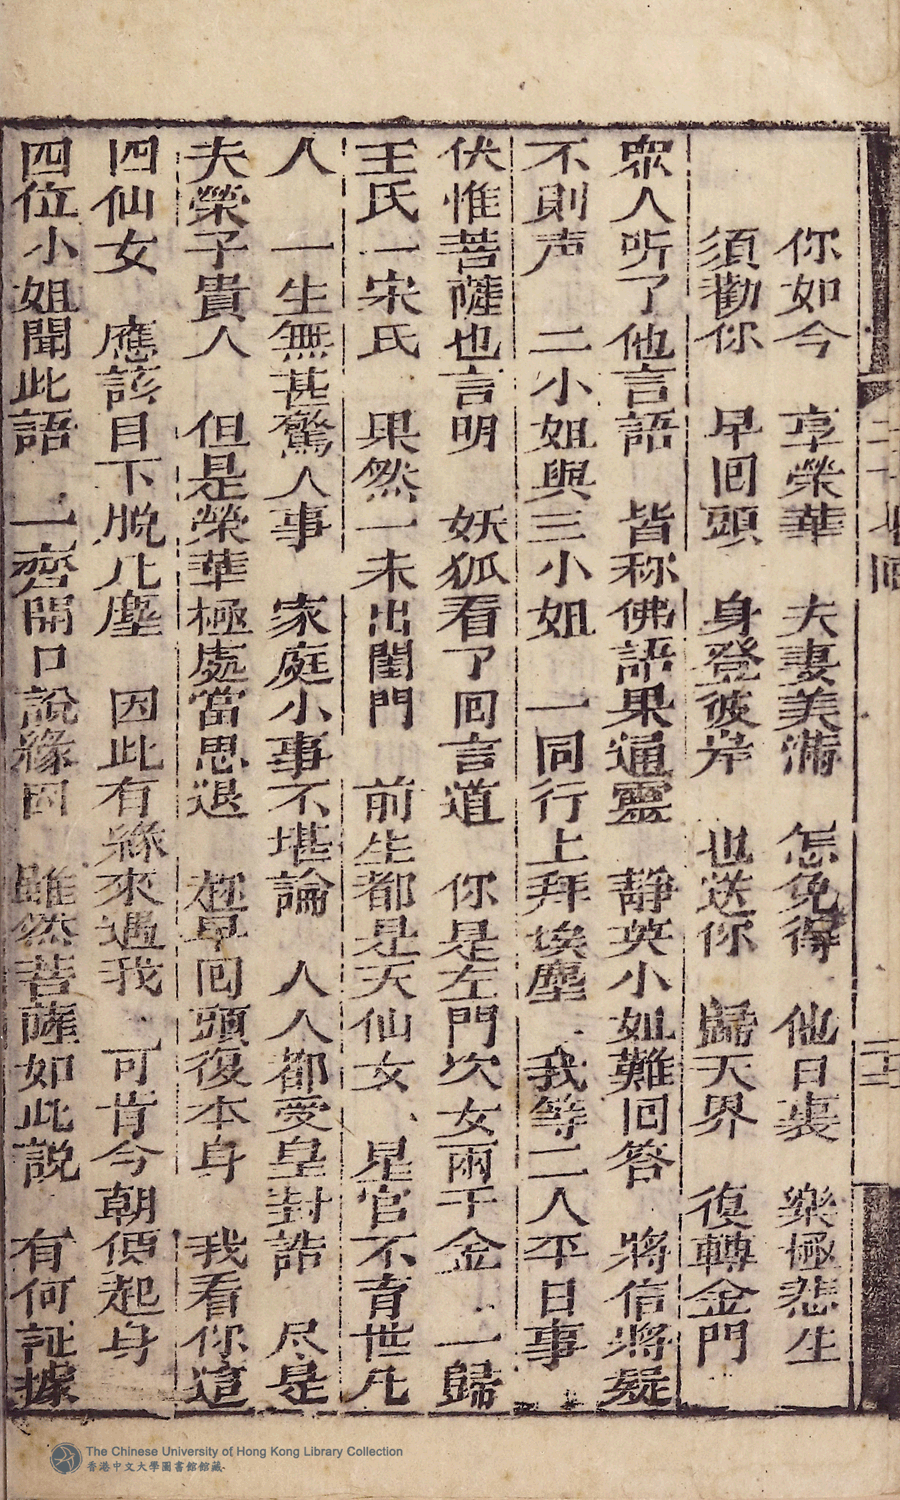 你如今　享榮華　夫妻美滿　怎免得　他日裏　樂極悲生
須勸你　早回頭　身登彼岸　也送你　歸天界　復轉金門
眾人听了他言語　皆称佛語果通靈　靜英小如難回答　將信將疑
不則声　二小姐與三小姐　一同行上拜埃塵　我等二人平日事
伏惟菩薩也言明　妖狐看了回言道　你是左門次女兩千金　一歸
王氏一宋氏　果然一未出閨門　前生都是天仙女　星官不育世凡
人　一生無甚驚人事　家庭小事不堪論　人人都受皇封誥　尽是
夫榮子貴人　但是榮華極處當思退　趂早回頭復本身　我看你這
四仙女　應該目下脫凡塵　因此有緣來遇我　可肯今朝便起身
四位小姐聞此語　一齊開口說緣因　雖然菩薩如此說　有何証據
The Chinese University of Hong Kong Library Collection
香港中文大學圖書館館藏